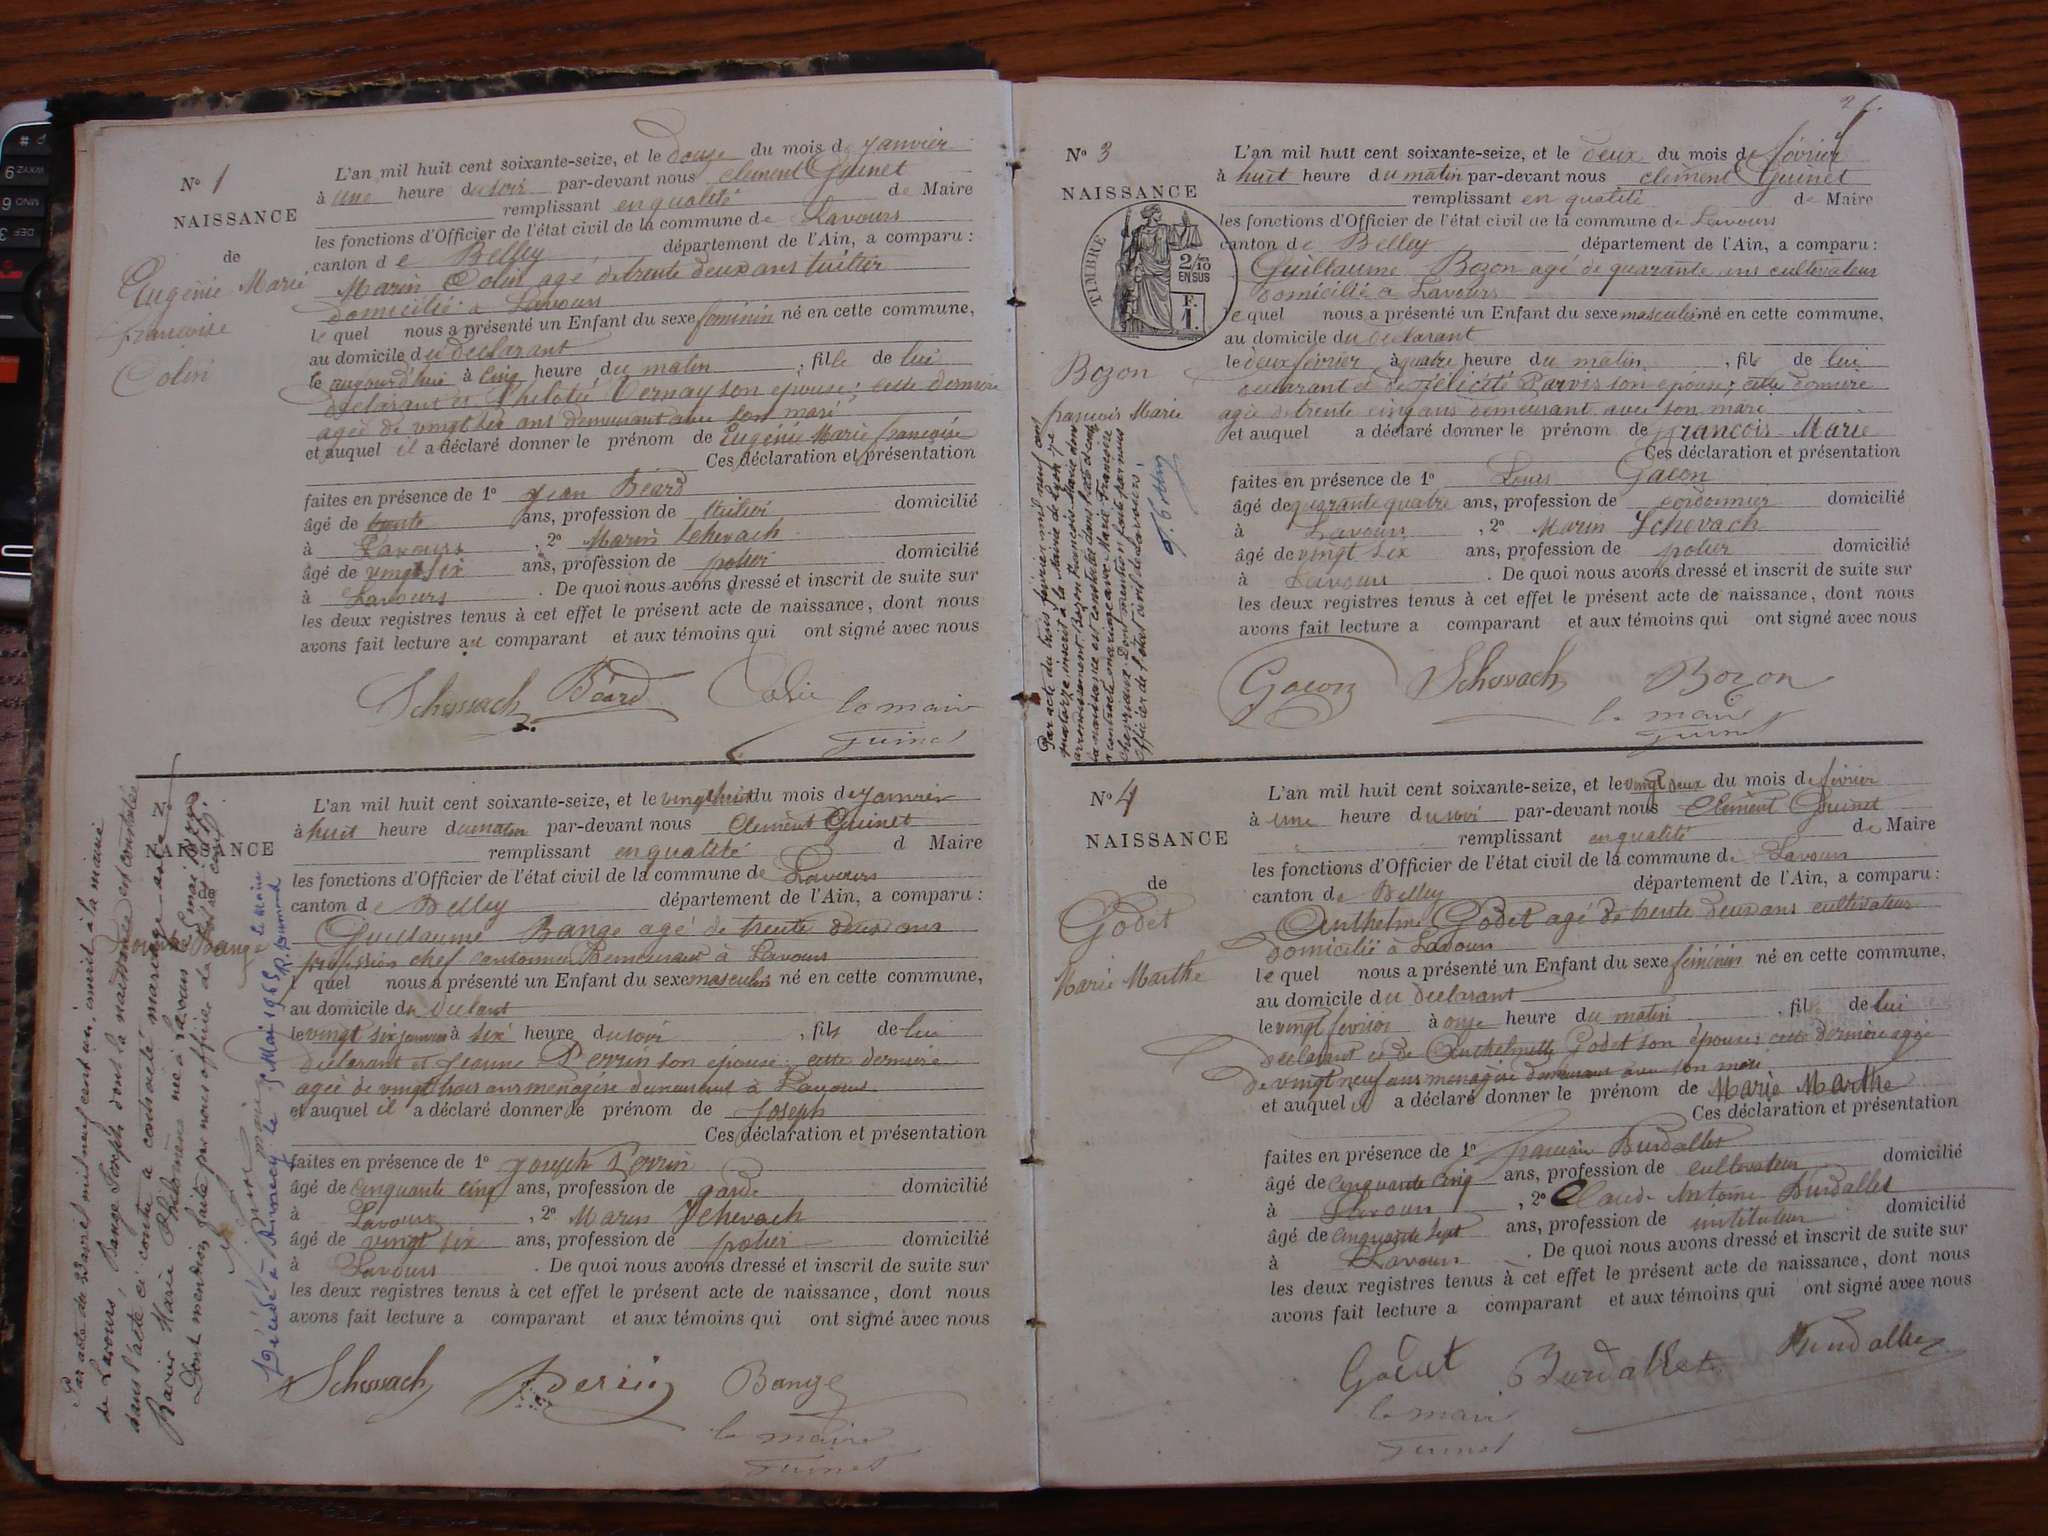 N° 1
NAISSANCE
de
Eugénie Marie
françoise
Colin
L'an mil huit cent soixante-seize, et le douze du mois de janvier
à une heure du soir par-devant nous clement Guinet
remplissant en qualité de Maire
les fonctions d'Officier de l'état civil de la commune de Lavours
canton de Belley département de l'Ain, a comparu :
Marin Colin agé de trente deux ans tuilier
domicilié à Lavours
le quel nous a présenté un Enfant du sexe féminin né en cette commune,
au domicile du declarant
le aujourd'hui à cinq heure du matin, fille de lui
declarant et Philotée Vernay son epouse; cette derniere
agée de vingt six ans demeurant avec son mari
et auquel il a déclaré donner le prénom de Eugénie Marie françoise
Ces déclaration et présentation
faites en présence de 1° Jean Béard
âgé de trente ans, profession de tuilier domicilié
à Lavours, 2° Marin Schevach
âgé de vingt six ans, profession de potier domicilié
à Lavours. De quoi nous avons dressé et inscrit de suite sur
les deux registres tenus à cet effet le présent acte de naissance, dont nous
avons fait lecture au comparant et aux témoins qui ont signé avec nous
Schevach Béard Colin le maire
Guinet
NAISSANCE
Bange
L'an mil huit cent soixante-seize, et le vingt huit du mois de janvier
à huit heure du matin par-devant nous Clement Guinet
remplissant en qualité d Maire
les fonctions d'Officier de l'état civil de la commune de Lavours
canton de Belley département de l'Ain, a comparu :
Guillaume Bange agé de trente deux ans
profession chef cantonnier Demeurant à Lavours
l quel nous a présenté un Enfant du sexe masculin né en cette commune,
au domicile du declarant
le vingt six janvier à six heure du soir, fils de lui
declarant et Jeanne Perrin son épouse; cette derniere
agée de vingt trois ans menagère demeurant à Lavours
et auquel il a déclaré donner le prénom de Joseph
Ces déclaration et présentation
faites en présence de 1° Joseph Perrin
âgé de cinquante cinq ans, profession de garde domicilié
à Lavours, 2° Marin Schevach
âgé de vingt six ans, profession de potier domicilié
à Lavours. De quoi nous avons dressé et inscrit de suite sur
les deux registres tenus à cet effet le présent acte de naissance, dont nous
avons fait lecture a comparant et aux témoins qui ont signé avec nous
Schevach Perrin Bange
le maire
Guinet
Par acte du 23 avril mil neuf cent un, inscrit à la mairie
de Lavours, Bange Joseph dont la naissance est constatée
dans l'acte ci contre a contracté mariage avec
Marie Philomène née à Lavours
Dont mention faite par nous officier de l'état civil.
Décédé à Annecy le 3 Mai 1965 Le Maire
N° 3
NAISSANCE
TIMBRE
2/10
EN SUS
F.
1.
Bozon
françois Marie
L'an mil huit cent soixante-seize, et le deux du mois de février
à huit heure du matin par-devant nous clement Guinet
remplissant en qualité de Maire
les fonctions d'Officier de l'état civil de la commune de Lavours
canton de Belley département de l'Ain, a comparu :
Guillaume Bozon agé de quarante ans cultivateur
domicilié à Lavours
le quel nous a présenté un Enfant du sexe masculin né en cette commune,
au domicile du declarant
le deux février à quatre heure du matin, fils de lui
declarant et de félicité Parvis son epouse; cette dernière
agée de trente cinq ans demeurant avec son mari
et auquel a déclaré donner le prénom de françois Marie
Ces déclaration et présentation
faites en présence de 1° Louis Gacon
âgé de quarante quatre ans, profession de cordonnier domicilié
à Lavours, 2° Marin Schevach
âgé de vingt six ans, profession de potier domicilié
à Lavours. De quoi nous avons dressé et inscrit de suite sur
les deux registres tenus à cet effet le présent acte de naissance, dont nous
avons fait lecture a comparant et aux témoins qui ont signé avec nous
Gacon Schevach Bozon
le maire
Guinet
Par acte du trois février mil neuf cent
quatorze, inscrit à la Mairie de Lyon
arrondissement, Bozon François-Marie dont
la naissance est constatée dans l'acte ci-contre,
a contracté mariage avec Marie Françoise
Chevriaux. Dont mention faite par nous
officier de l'état civil de Lavours.
N° 4
NAISSANCE
de
Godet
Marie Marthe
L'an mil huit cent soixante-seize, et le vingt deux du mois de février
à une heure du soir par-devant nous Clément Guinet
remplissant en qualité de Maire
les fonctions d'Officier de l'état civil de la commune de Lavours
canton de Belley département de l'Ain, a comparu :
Anthelme Godet agé de trente deux ans cultivateur
domicilié à Lavours
le quel nous a présenté un Enfant du sexe féminin né en cette commune,
au domicile du declarant
le vingt février à onze heure du matin, fille de lui
declarant et de Anthelmette Godet son épouse; cette dernière agée
de vingt neuf ans menagère demeurant avec son mari
et auquel il a déclaré donner le prénom de Marie Marthe
Ces déclaration et présentation
faites en présence de 1° françois Burdallet
âgé de cinquante cinq ans, profession de cultivateur domicilié
à Lavours, 2° Claude Antoine Burdallet
âgé de cinquante sept ans, profession de instituteur domicilié
à Lavours. De quoi nous avons dressé et inscrit de suite sur
les deux registres tenus à cet effet le présent acte de naissance, dont nous
avons fait lecture a comparant et aux témoins qui ont signé avec nous
Godet Burdallet Burdallet
le maire
Guinet